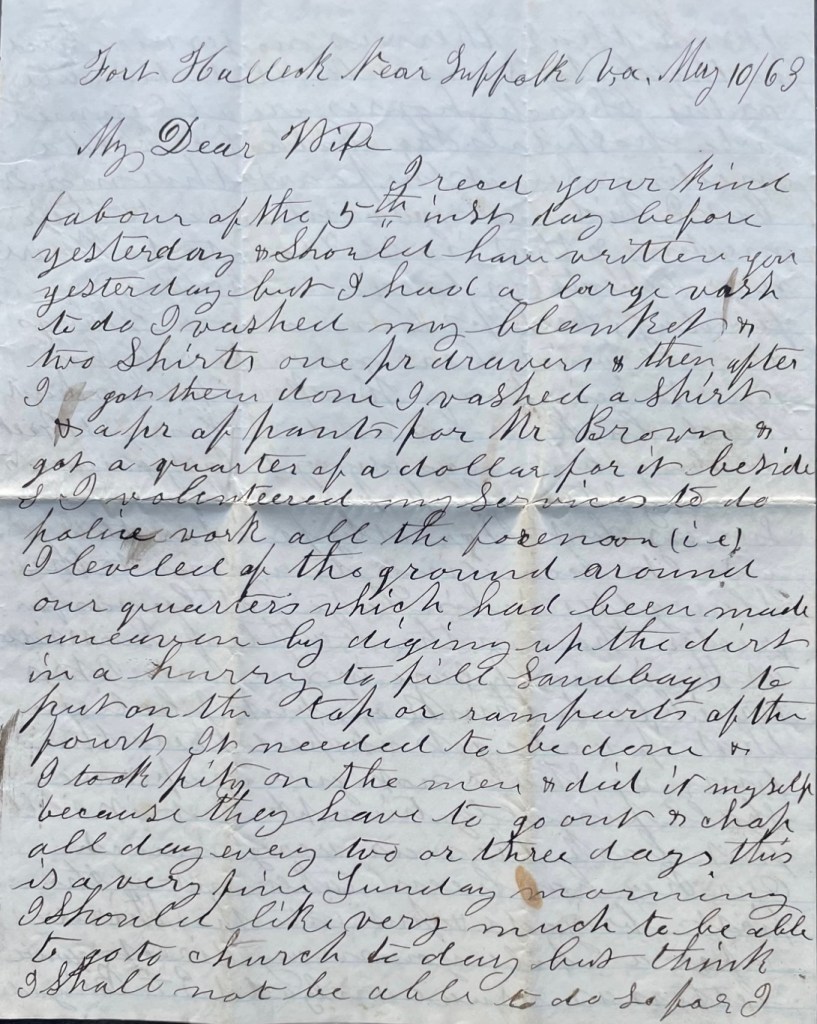 Fort Halleck Near Suffolk Va. May 10/63
My Dear Wife
I recd your kind
fabour of the 5th inst day before
yesterday & Should have written you
yesterday but I had a large wash
to do I washed my blanket &
two Shirts one pr drawers & then after
I got them done I washed a Shirt
& a pr of pants for Mr Brown &
got a quarter of a dollar for it beside
I volenteered my Services to do
police work all the forenoon (i e)
I leveled of the ground around
our quarters which had been made
uneaven by diging up the dirt
in a hurry to fill Sandbags to
put on the top or ramparts of the
fourt It needed to be done &
I took pity on the men & did it myself
because they have to go out & chop
all day every two or three days this
is a very fine Sunday morning
I Should like very much to be able
to go to church to day but think
I Shall not be able to do so for I